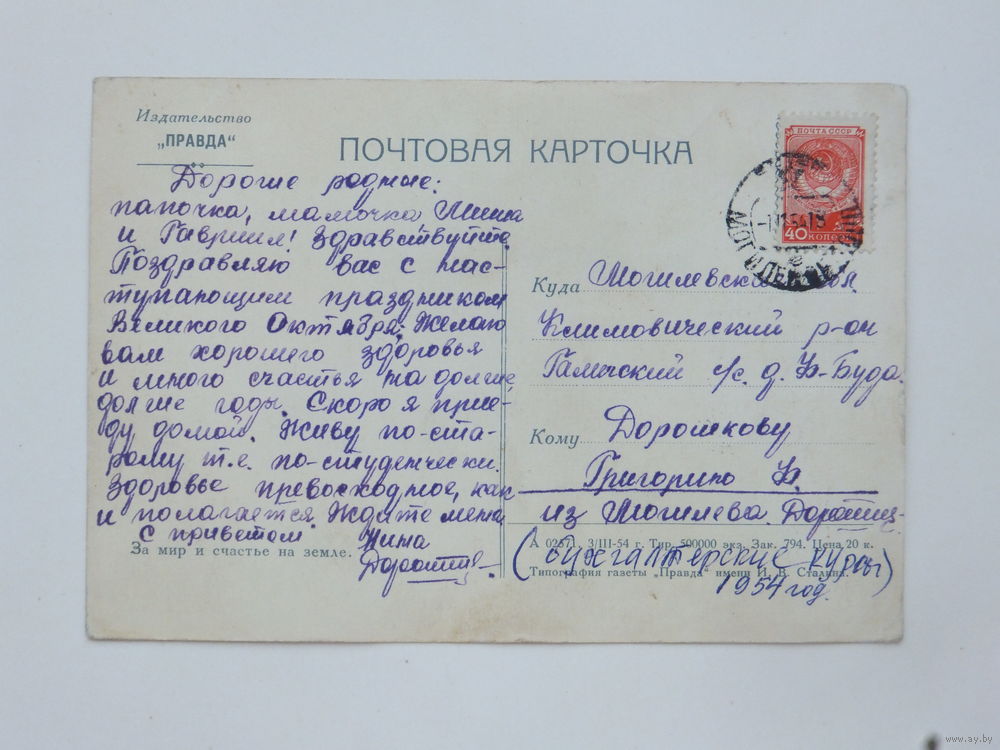 Издательство
„ПРАВДА“
ПОЧТОВАЯ КАРТОЧКА
Дорогие родные:
папочка, мамочка Миша
и Гавриил! Здравствуйте.
Поздравляю вас с нас-
тупающим праздником
Великого Октября. Желаю
вам хорошего здоровья
и много счастья на долгие,
долгие годы. Скоро я прие-
ду домой. Живу по-ста-
рому т.е. по-студенчески.
Здоровье превосходное, как
и полагается. Ждите меня
С приветом Нина
За мир и счастье на земле.
ПОЧТА СССР
40 КОПЕЕК
Куда Могилевская обл.
Климовический р-он
с/с. д. Ф-Буда.
Кому Дорошкову
Григорию Ф.
из Могилева.
А 02571. 3/III-54 г. Тир. 500000 экз. Зак. 794. Цена 20 к.
(бухгалтерские курсы)
Типография газеты „Правда“ имени И. В. Сталина.
1954 год.
www.ay.by